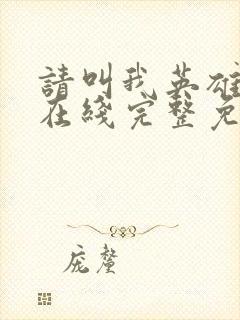 請叫我英雄
在綫完整免
庞鳌